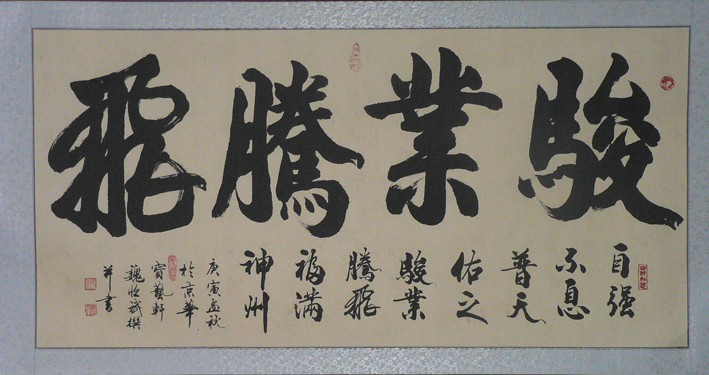 駿業騰飛
自强
不息
普天
佑之
駿業
騰飛
福满
神州
庚寅孟秋
於京華
寶藝軒
魏
撰
并書